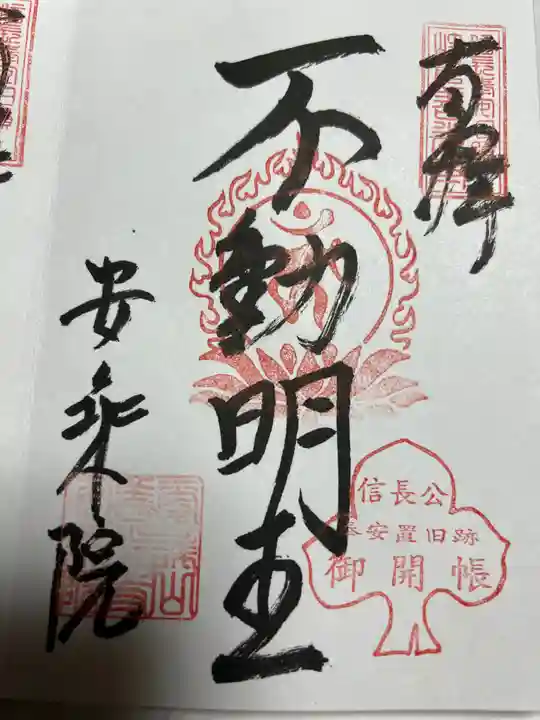 奉拝
不動明王
信長公
奉安置旧跡
御開帳
安楽院